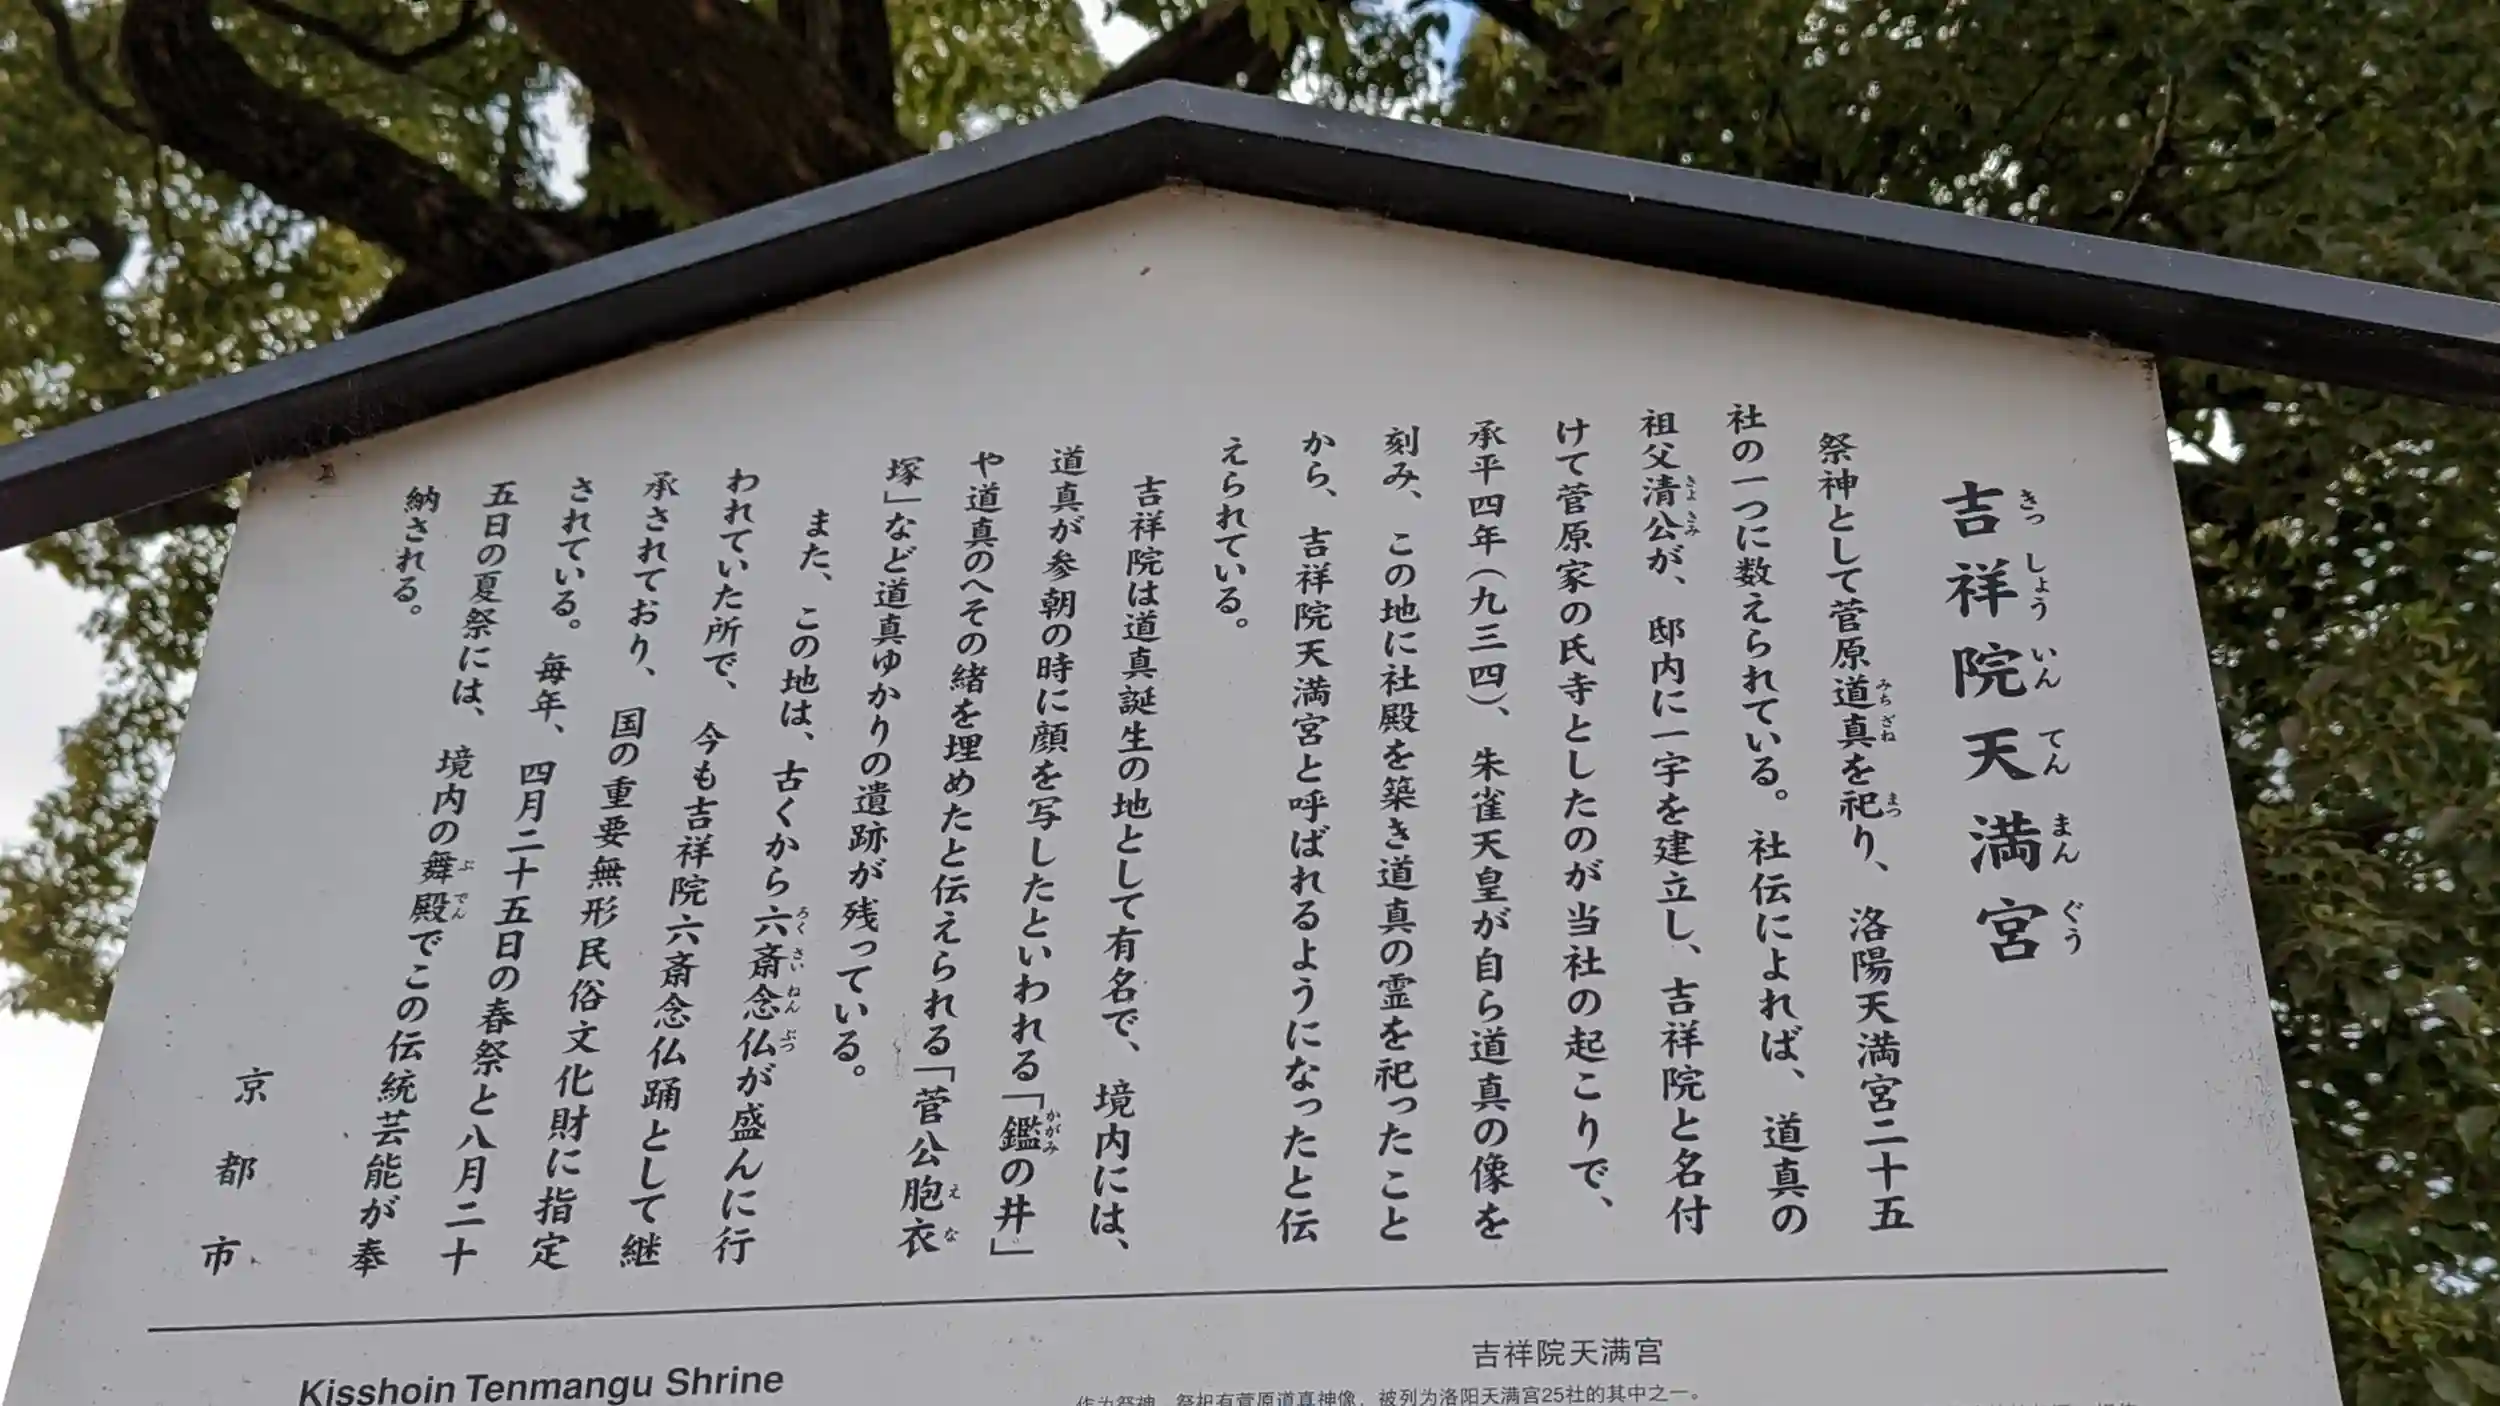 吉祥院天満宮
きっしょういんてんまんぐう
祭神として菅原道真を祀り、洛陽天満宮二十五
みちざね まつ
社の一つに数えられている。社伝によれば、道真の
祖父清公が、邸内に一宇を建立し、吉祥院と名付
きよきみ
けて菅原家の氏寺としたのが当社の起こりで、
承平四年(九三四)、朱雀天皇が自ら道真の像を
刻み、この地に社殿を築き道真の霊を祀ったこと
から、吉祥院天満宮と呼ばれるようになったと伝
えられている。
吉祥院は道真誕生の地として有名で、境内には、
道真が参朝の時に顔を写したといわれる「鑑の井」
かがみ
や道真のへその緒を埋めたと伝えられる「菅公胞衣
えな
塚」など道真ゆかりの遺跡が残っている。
また、この地は、古くから六斎念仏が盛んに行
ろくさいねんぶつ
われていた所で、今も吉祥院六斎念仏踊として継
承されており、国の重要無形民俗文化財に指定
されている。毎年、四月二十五日の春祭と八月二十
五日の夏祭には、境内の舞殿でこの伝統芸能が奉
ぶでん
納される。
京都市
Kisshoin Tenmangu Shrine
吉祥院天满宫
作为祭神，祭祀有菅原道真神像，被列为洛阳天满宫25社的其中之一。